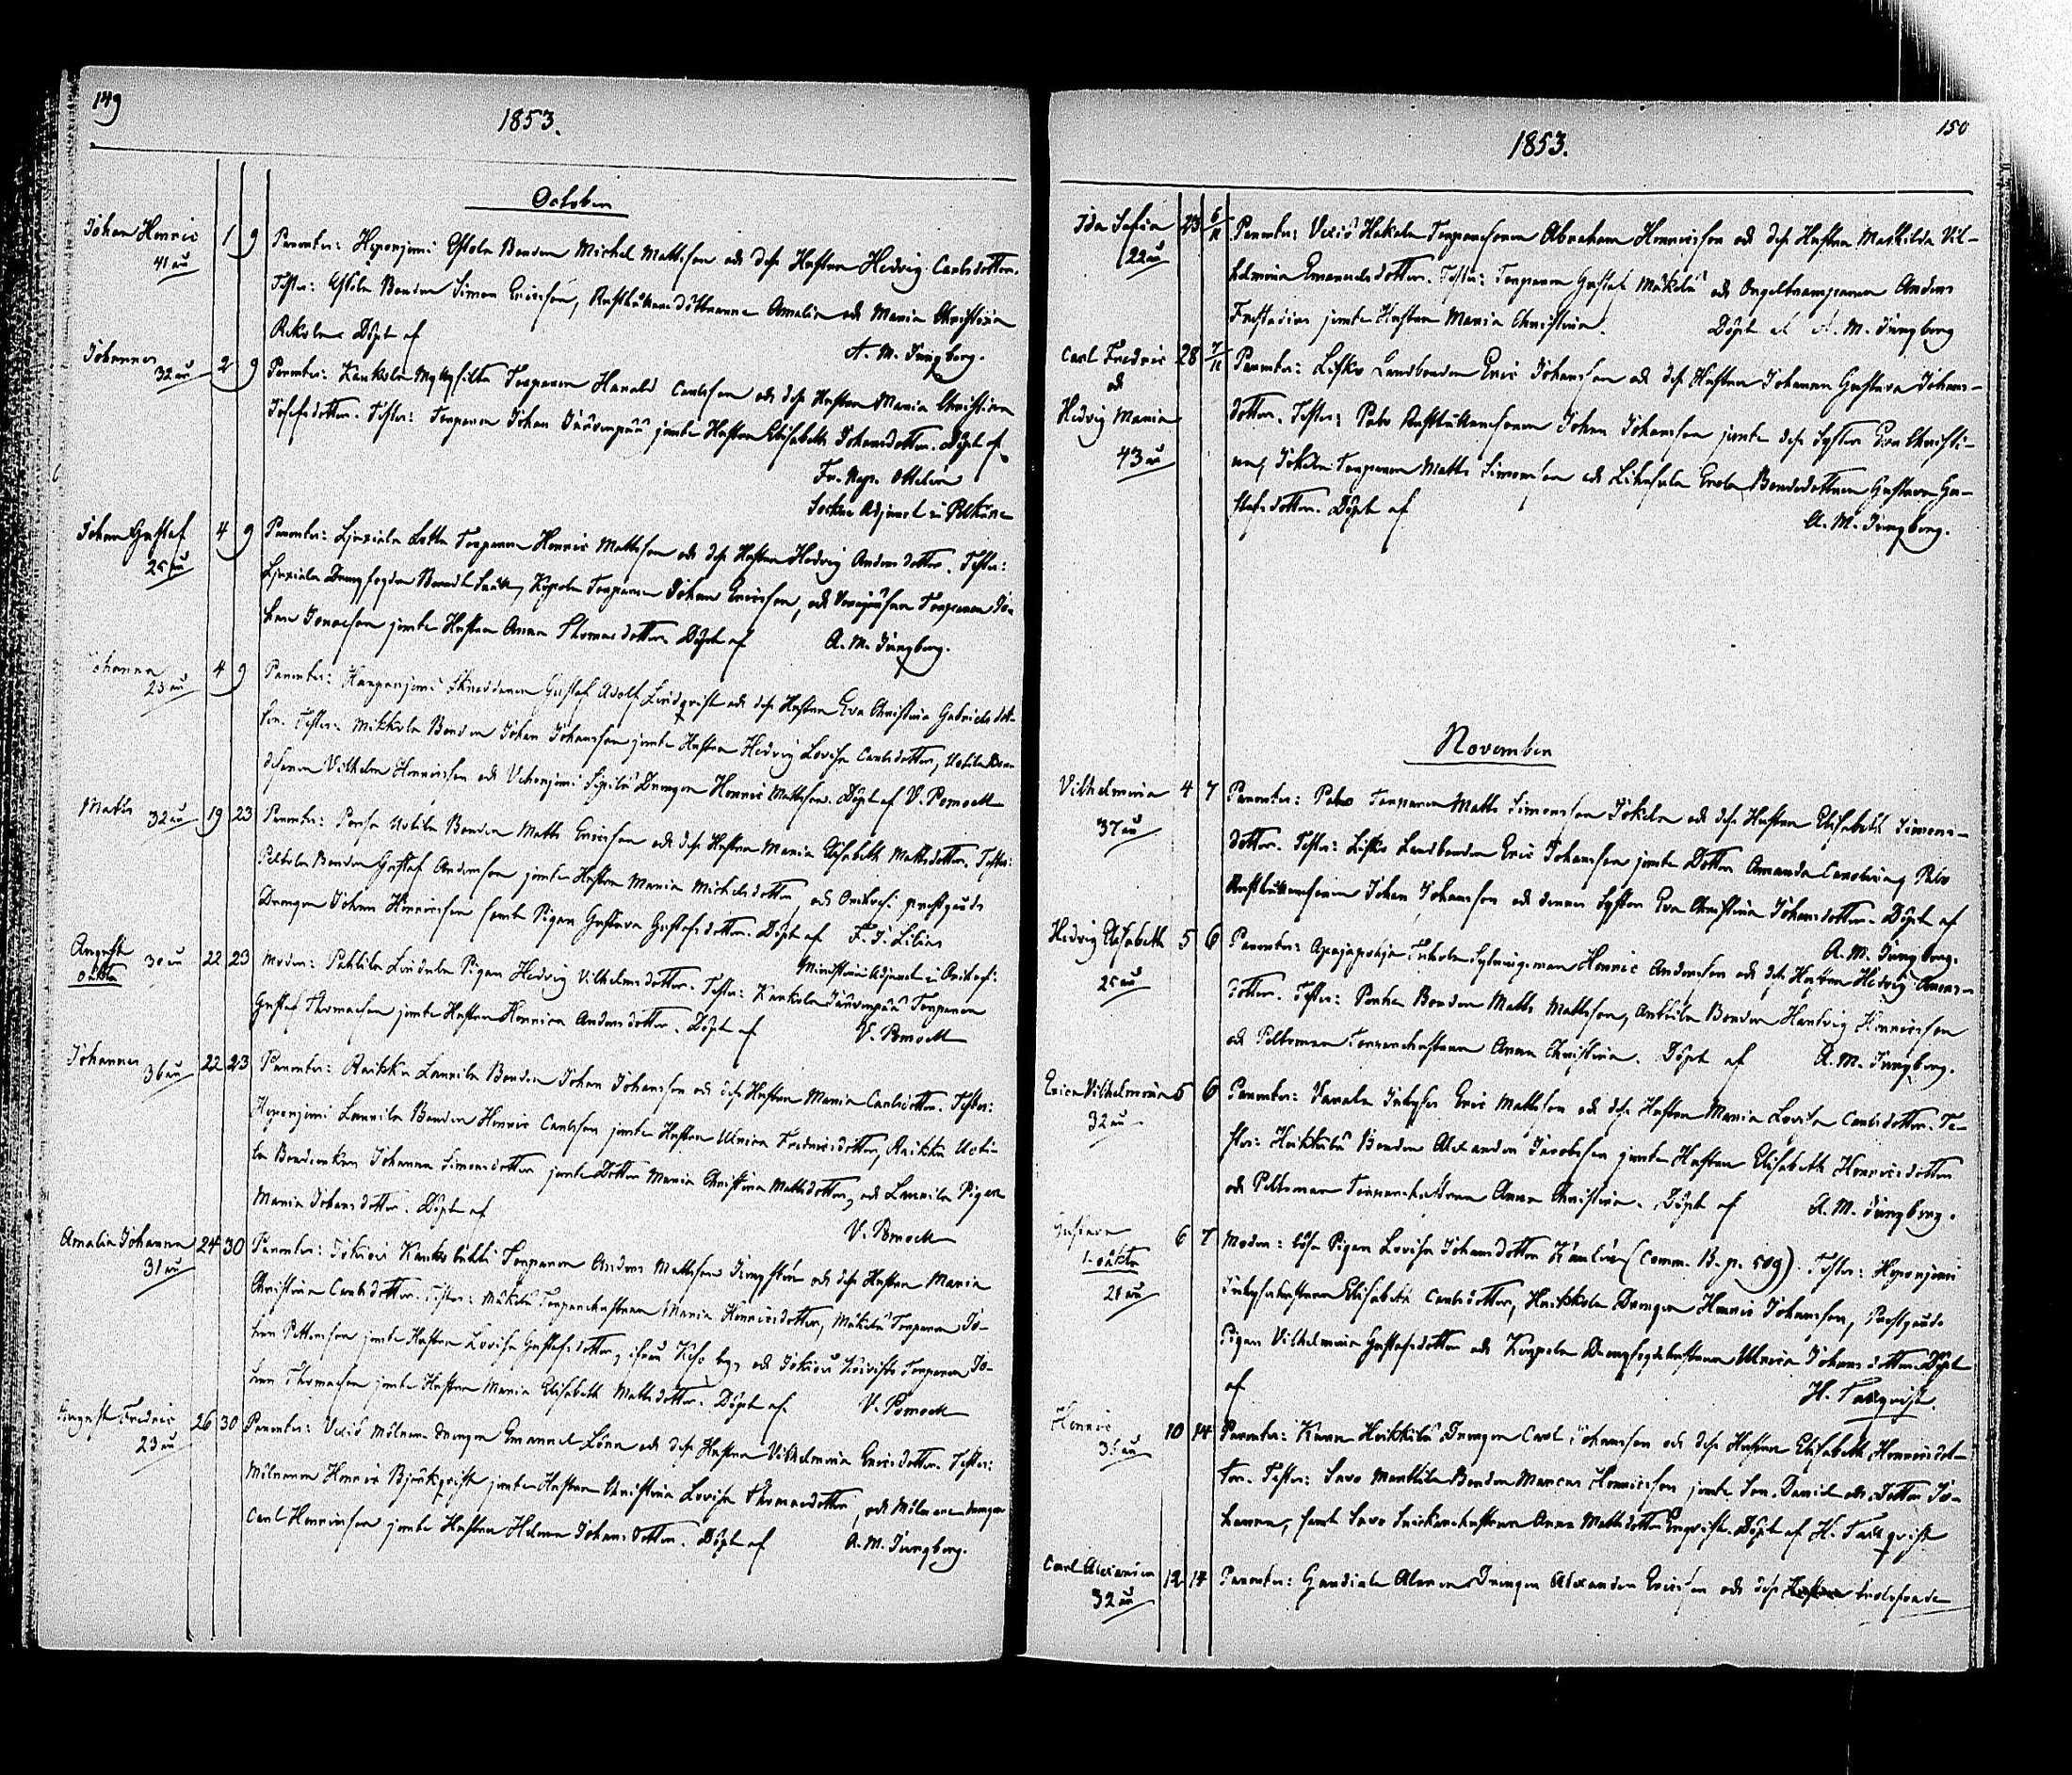 149
1853.
October
Johan Henric 1 9 Parentes: Heponjemi Ostola Bonden Michel Mattsson och dess Hustru Hedvig Carlsdotter.
41 år Testes: Ostola Bonden Simon Ericsson, Rusthållare döttrarna Amalia och Maria Christina
Rekola. Döpt af A. M. Ljungberg.
Johannes 2 9 Parentes: Kankola Torparen Harald Carlsson och dess Hustru Maria Christina
32 år Josefsdotter. Testes: Torparen Johan Jäävenpää jemte Hustru Elisabeth Johansdotter. Döpt af
Fr. Nap. Ottelin
Sockne Adjunct i Pelkäne
Johan Gustaf 4 9 Parentes: Torparen Henric Mattsson och dess Hustru Hedvig Andersdotter. Testes:
25 år Torparen Johan Ericsson, och Torparen Jo-
han jemte Hustru Anna Thomasdotter. Döpt af A. M. Ljungberg.
Johanna 4 9 Parentes: Gustaf Adolf Lindqvist och dess Hustru Eva Christina Gabrielsdot-
23 år ter. Testes: Mikkola Bonden Johan Johansson jemte Hustru Hedvig Lovisa Carlsdotter, Uotila Bon-
desonen Vilhelm Henricsson och Drengen Henric Mattsson. Döpt af V. Pomoell
Matts 32 år 19 23 Parentes: Uotila Bonden Matts Ericsson och dess Hustru Maria Elisabeth Mattsdotter. Testes:
Peltola Bonden Gustaf Andersson jemte Hustru Maria Michelsdotter, och Orihvesi prestgårds
Drengen Johan Henricsson samt Pigan Gustava Gustafsdotter. Döpt af F. J. Lilius
Ministerii Adjunct i Orihvesi.
August 30 år 22 23 Moder: Pigan Hedvig Vilhelmsdotter. Testes: Kankola Jäävenpää Torparen
oäkta Gustaf Thomasson jemte Hustru Henrica Andersdotter. Döpt af V. Pomoell
Johannes 36 år 22 23 Parentes: Raikku Laurila Bonden Johan Johansson och dess Hustru Maria Carlsdotter. Testes:
Heponjemi Laurila Bonden Henric Carlsson jemte Hustru Ulrica Fredricsdotter, Raikku Uoti-
la Bondenkan Johanna Simonsdotter jemte Dotter Maria Christina Mattsdotter, och Laurila Pigan
Maria Johansdotter. Döpt af V. Pomoell
Amalia Johanna 24 30 Parentes: Torparen Anders Mattsson och dess Hustru Maria
31 år Christina Carlsdotter. Testes: Mäkelä Torparehustrun Maria Henricsdotter, Mäkelä Torparen Jo-
han Pettersson jemte Hustru Lovisa Gustafsdotter, och Torparen Jo-
han Thomasson jemte Hustru Maria Elisabeth Mattsdotter. Döpt af V. Pomoell
August Fredric 26 30 Parentes: Drengen Emanuel Lönn och dess Hustru Vilhelmina Ericsdotter. Testes:
23 år Mölnaren Henric Björkqvist jemte Hustru Christina Lovisa Thomasdotter, och Mölnare drengen
Carl Henricsson jemte Hustru Helena Johansdotter. Döpt af A. M. Ljungberg.
150
1853.
Ida Sofia 23 6/11 Parentes: Hakala Torparesonen Abraham Henricsson och dess Hustru Mathilda Vil-
22 år helmina Emanuelsdotter. Testes: Torparen Gustaf Mäkelä och Orgeltramparen Anders
jemte Hustru Maria Christina. Döpt af A. M. Ljungberg
Carl Fredric 28 7/11 Parentes: Lisko Landbonden Eric Johansson och dess Hustru Johanna Gustava Johans-
och dotter. Testes: Palo Rusthållaresonen Johan Johansson jemte dess Syster Eva Christi-
Hedvig Maria na, Jokela Torparen Matts Simonsson och Erola Bondedottern Gustava Gu-
43 år stafsdotter. Döpt af A. M. Ljungberg.
November
Vilhelmina 4 7 Parentes: Palo Torparen Matts Simonsson Jokela och dess Hustru Elisabeth Simons-
37 år dotter. Testes: Lisko Landbonden Eric Johansson jemte Dotter Amanda Carolina, Palo
Rusthållaresonen Johan Johansson och dennes Syster Eva Christina Johansdotter. Döpt af
A. M. Ljungberg.
Hedvig Elisabeth 5 6 Parentes: Henric Andersson och dess Hustru Hedvig
25 år dotter. Testes: Bonden Matts Mattsson, Anttila Bonden Hartvig Henricsson
och Peltomaa Torparehustrun Anna Christina. Döpt af A. M. Ljungberg.
Erica Vilhelmina 5 6 Parentes: Inhyses Eric Mattsson och dess Hustru Maria Lovisa Carlsdotter. Te-
32 år stes: Heikkilä Bonden Alexander Jacobsson jemte Hustru Elisabeth Henricsdotter
och Peltomaa Torparehustrun Anna Christina. Döpt af A. M. Ljungberg.
Gustava 6 7 Moder: lösa Pigan Lovisa Johansdotter (Comm. B. p. 509). Testes: Heponjemi
oäkta Inhyseshustrun Elisabeth Carlsdotter, Heikkola Drengen Henric Johansson, Prestgårds
21 år Pigan Vilhelmina Gustafsdotter och Drengfogdehustrun Ulrica Johansdotter. Döpt
af H. Tallqvist.
Henric 10 14 Parentes: Heikkilä Drengen Carl Johansson och dess Hustru Elisabeth Henricsdot-
35 år ter. Testes: Savo Marttila Bonden Marcus Henricsson jemte Son Daniel och Dotter Jo-
hanna, samt Savo Snickarehustrun Anna Mattsdotter Engvist. Döpt af H. Tallqvist
Carl Alexander 12 14 Parentes: Drengen Alexander Ericsson och dess trolofvade
32 år